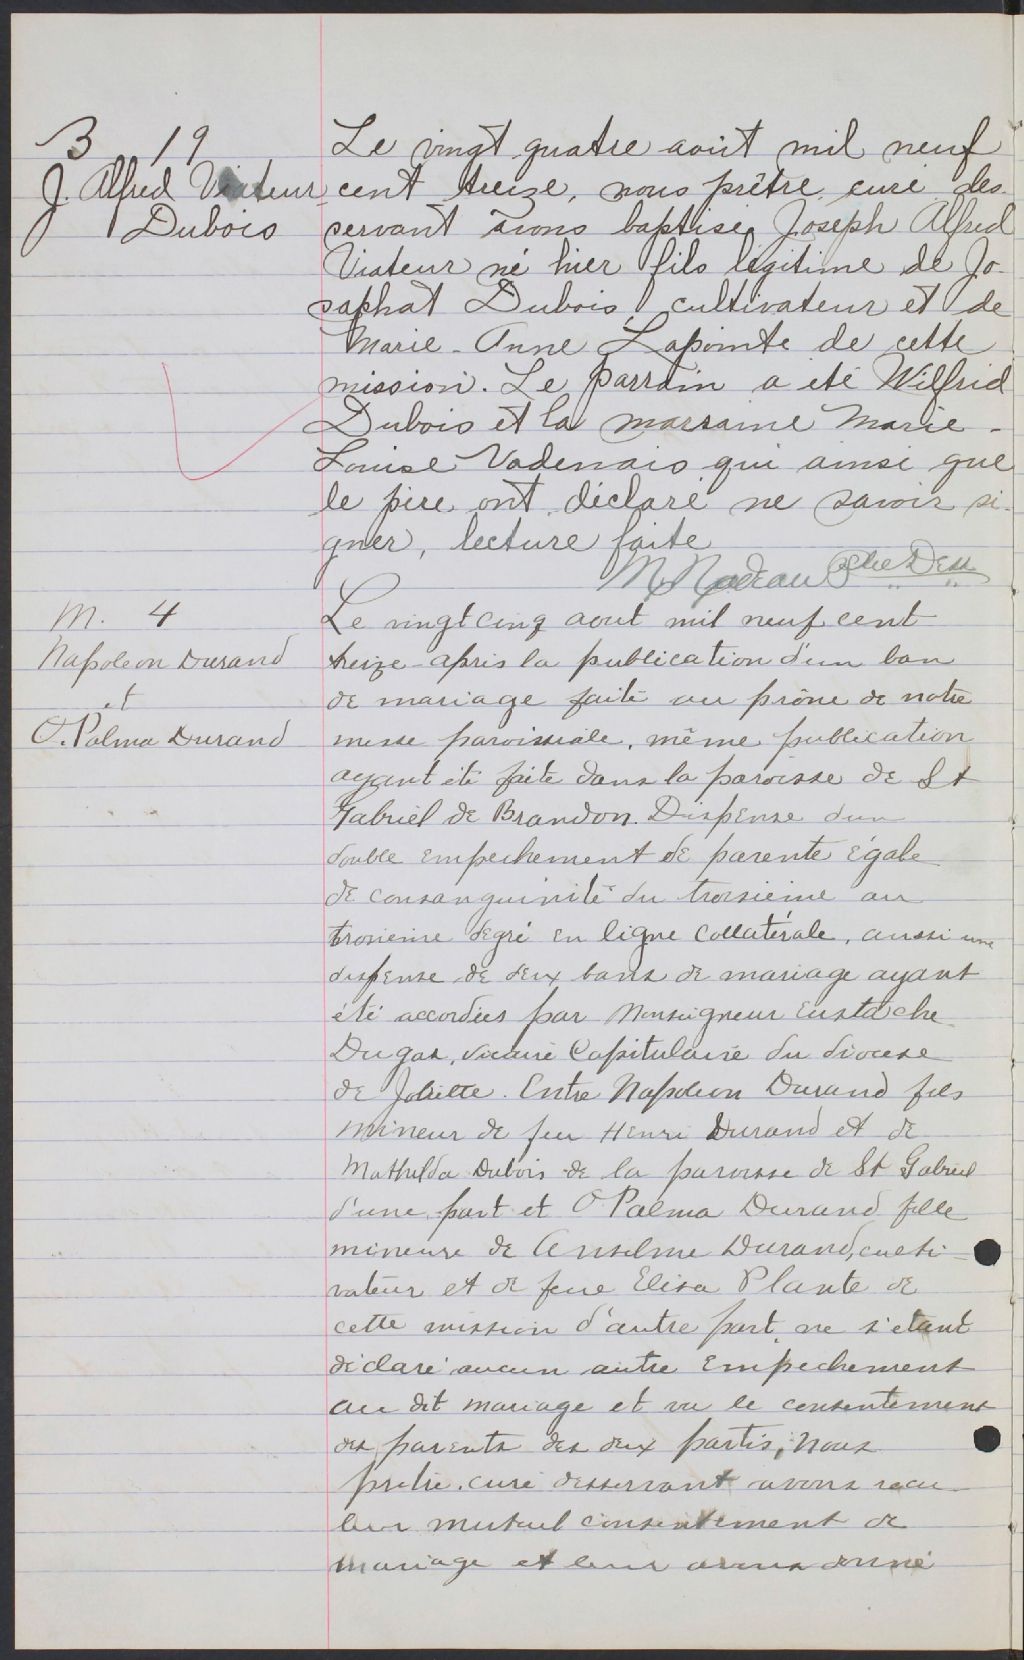 B 19
J. Alfred Viateur
Dubois
Le vingt quatre août mil neuf
cent treize, nous prêtre curé des-
servant avons baptisé Joseph Alfred
Viateur né hier fils légitime de Jo-
saphat Dubois, cultivateur et de
Marie-Anne Lapointe de cette
mission. Le parrain a été Wilfrid
Dubois et la marraine Marie-
Louise Vadenais qui ainsi que
le père ont déclaré ne savoir si-
gner, lecture faite
M. Nadeau Ptre Dess
M. 4
Napoleon Durand
et
O. Palma Durand
Le vingt cinq aout mil neuf cent
treize après la publication d'un ban
de mariage faite au prône de notre
messe paroissiale, même publication
ayant été faite dans la paroisse de St
Gabriel de Brandon. Dispense d'un
double empechement de parenté égale
de consanguinité du troisième au
troisieme degré en ligne collatérale, aussi une
dispense de deux bans de mariage ayant
été accordées par Monseigneur Eustache
Dugas, vicaire Capitulaire du diocese
de Joliette. Entre Napoleon Durand fils
mineur de feu Henri Durand et de
Mathilda Dubois de la paroisse de St Gabriel
d'une part et O Palma Durand fille
mineure de Anselme Durand, culti-
vateur et de feue Elisa Plante de
cette mission d'autre part, ne s'etant
déclaré aucun autre empechement
au dit mariage et vu le consentement
des parents des deux partis, Nous
prêtre, curé desservant avons recu
leur mutuel consentement de
mariage et leur avons donné